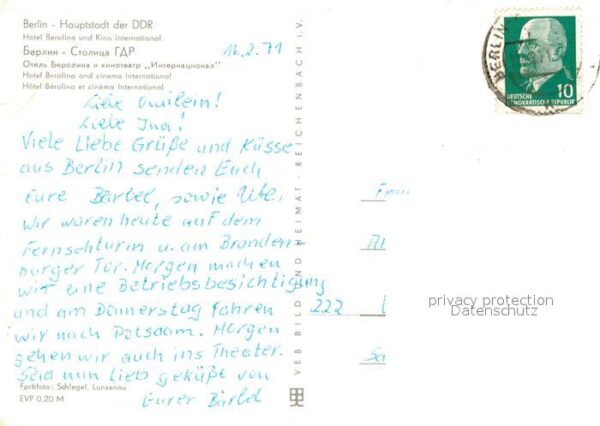 Berlin - Hauptstadt der DDR
Hotel Berolina und Kino International
Берлин - Столица ГДР
Отель Беролина и кинотеатр ,,Интернационал"
Hotel Berolina and cinema International
Hôtel Bérolina et cinéma International
16.2.71
Liebe Omilein!
Liebe Ina!
Viele Liebe Grüße und Küsse
aus Berlin senden Euch
Eure Bärbel, sowie Ute,
wir waren heute auf dem
Fernsehturm u. am Branden
burger Tor. Morgen machen
wir eine Betriebsbesichtigung
und am Donnerstag fahren
wir nach Potsdam. Morgen
gehen wir auch ins Theater.
Seid nun lieb geküßt von
Eurer Bärbel
Farbfoto: Schlegel, Lunzenau
EVP 0,20 M
VEB BILD UND HEIMAT · REICHENBACH i. V.
BERLIN
DEUTSCHE
DEMOKRATISCHE REPUBLIK
10
Frau
222
privacy protection
Datenschutz